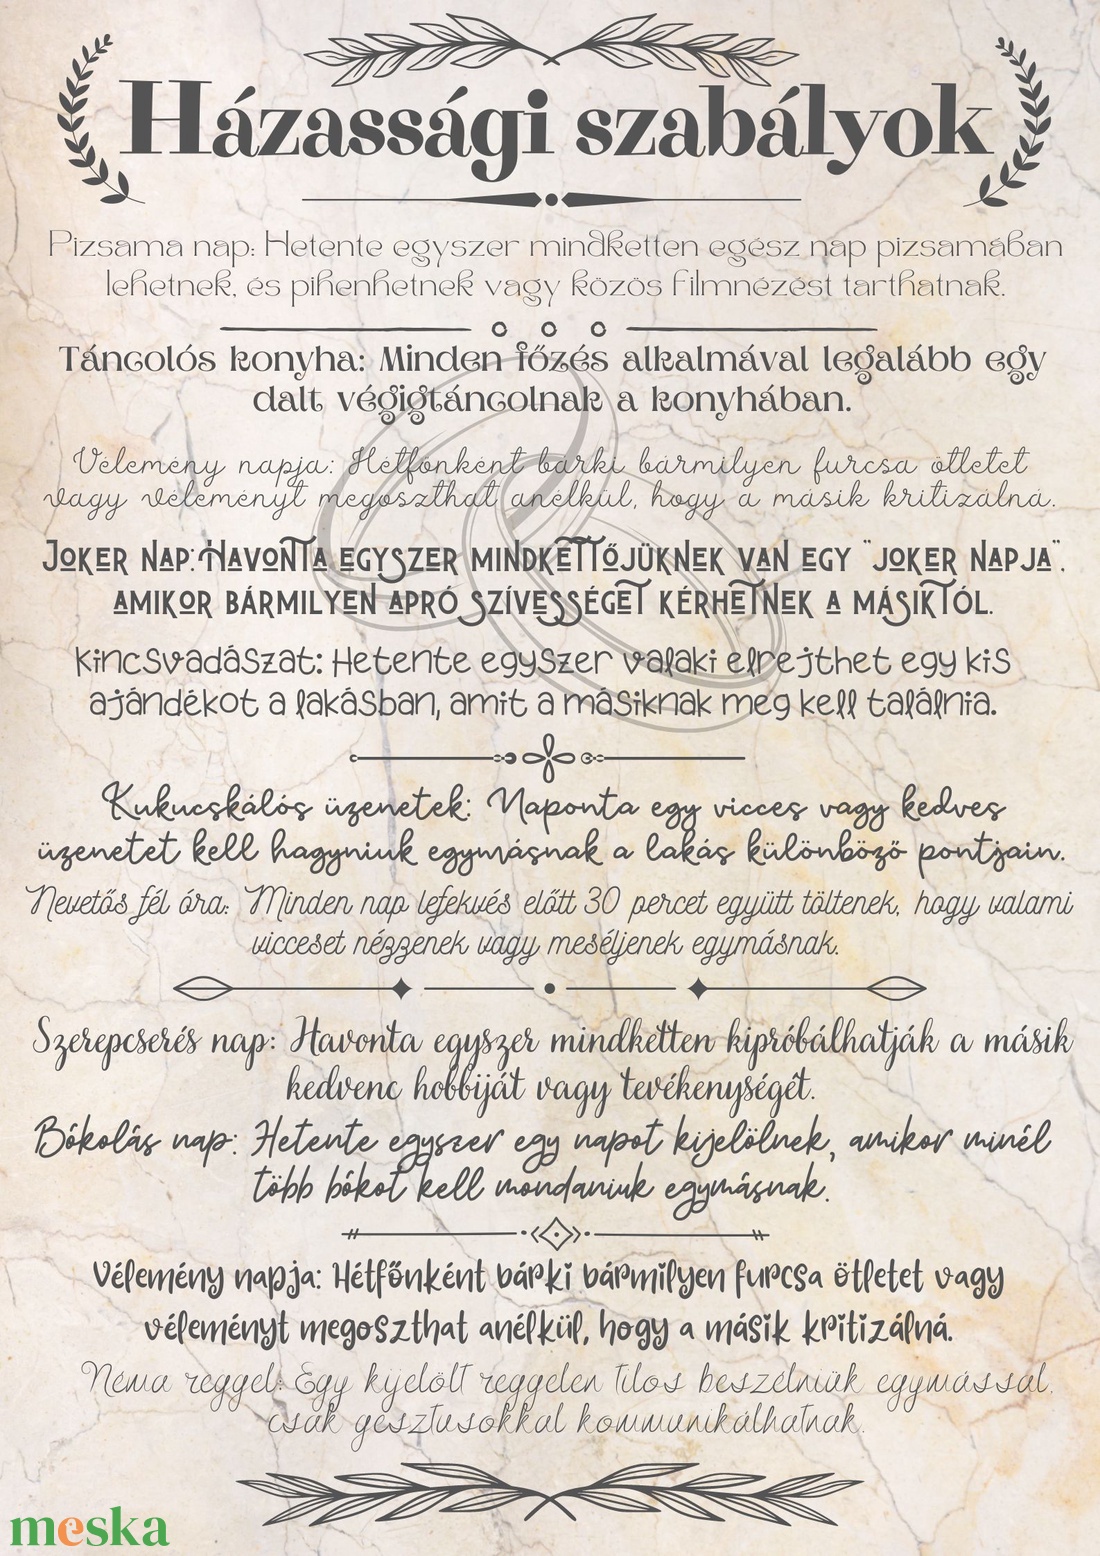 Házassági szabályok
Pizsama nap: Hetente egyszer mindketten egész nap pizsamában
lehetnek, és pihenhetnek vagy közös filmnézést tarthatnak.
Táncolós konyha: Minden főzés alkalmával legalább egy
dalt végigtáncolnak a konyhában.
Vélemény napja: Hétfőnként bárki bármilyen furcsa ötletet
vagy véleményt megoszthat anélkül, hogy a másik kritizálná.
JOKER NAP: HAVONTA EGYSZER MINDKETTŐJÜKNEK VAN EGY "JOKER NAPJA",
AMIKOR BÁRMILYEN APRÓ SZÍVESSÉGET KÉRHETNEK A MÁSIKTÓL.
Kincsvadászat: Hetente egyszer valaki elrejthet egy kis
ajándékot a lakásban, amit a másiknak meg kell találnia.
Kukucskálós üzenetek: Naponta egy vicces vagy kedves
üzenetet kell hagyniuk egymásnak a lakás különböző pontjain.
Nevetős fél óra: Minden nap lefekvés előtt 30 percet együtt töltenek, hogy valami
vicceset nézzenek vagy meséljenek egymásnak.
Szerepcserés nap: Havonta egyszer mindketten kipróbálhatják a másik
kedvenc hobbiját vagy tevékenységét.
Bókolás nap: Hetente egyszer egy napot kijelölnek, amikor minél
több bókot kell mondaniuk egymásnak.
Vélemény napja: Hétfőnként bárki bármilyen furcsa ötletet vagy
véleményt megoszthat anélkül, hogy a másik kritizálná.
Néma reggel: Egy kijelölt reggelen tilos beszélniük egymással,
csak gesztusokkal kommunikálhatnak.
meska